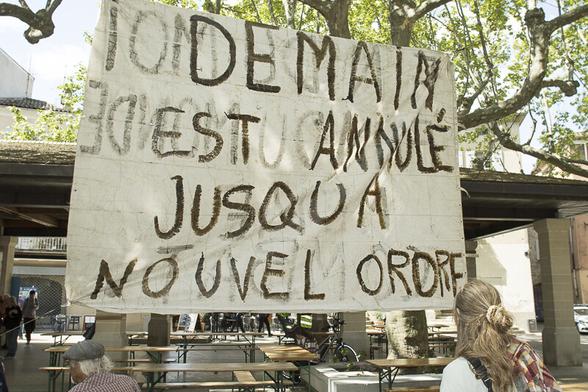 DEMAIN
EST ANNULÉ
JUSQUA
NOUVEL ORDRE